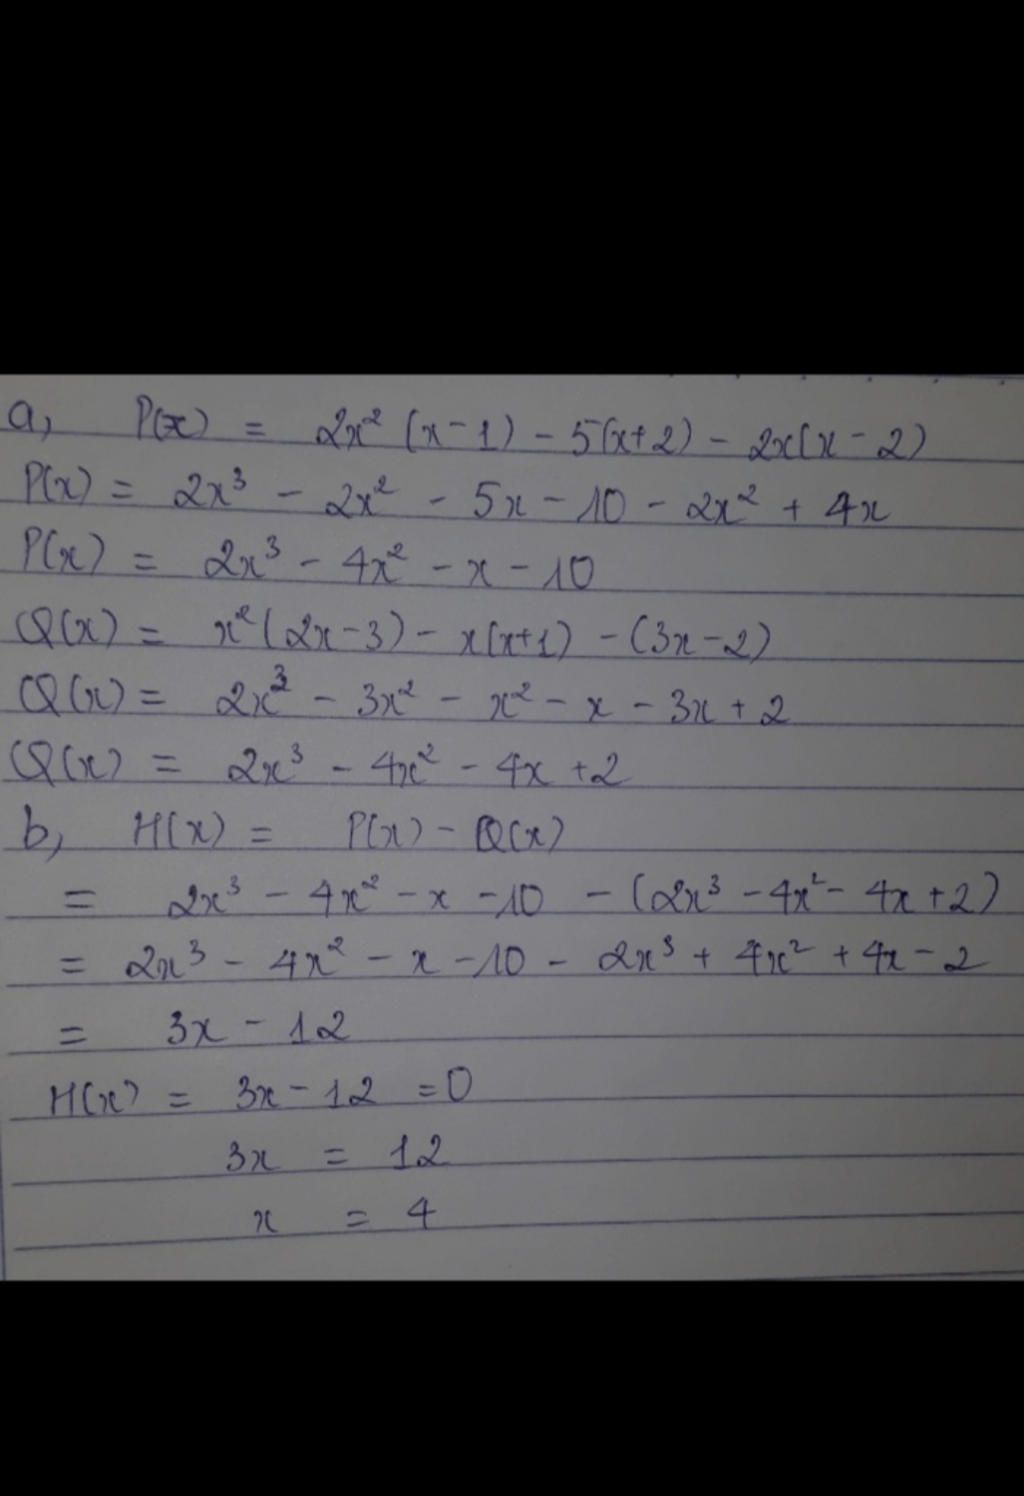 a, P(x) = 2x² (x - 1) - 5(x+2) - 2x(x - 2)
P(x) = 2x³ - 2x² - 5x - 10 - 2x² + 4x
P(x) = 2x³ - 4x² - x - 10
Q(x) = x²(2x-3) - x(x+1) - (3x-2)
Q(x) = 2x³ - 3x² - x² - x - 3x + 2
Q(x) = 2x³ - 4x² - 4x + 2
b, H(x) = P(x) - Q(x)
= 2x³ - 4x² - x - 10 - (2x³ - 4x² - 4x + 2)
= 2x³ - 4x² - x - 10 - 2x³ + 4x² + 4x - 2
= 3x - 12
H(x) = 3x - 12 = 0
3x = 12
x = 4